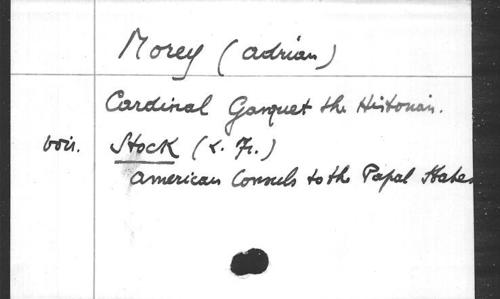 Morey (Adrian)
Cardinal Gasquet the Historian.
voir. Stock (L. Fr.)
American Consuls to the Papal States